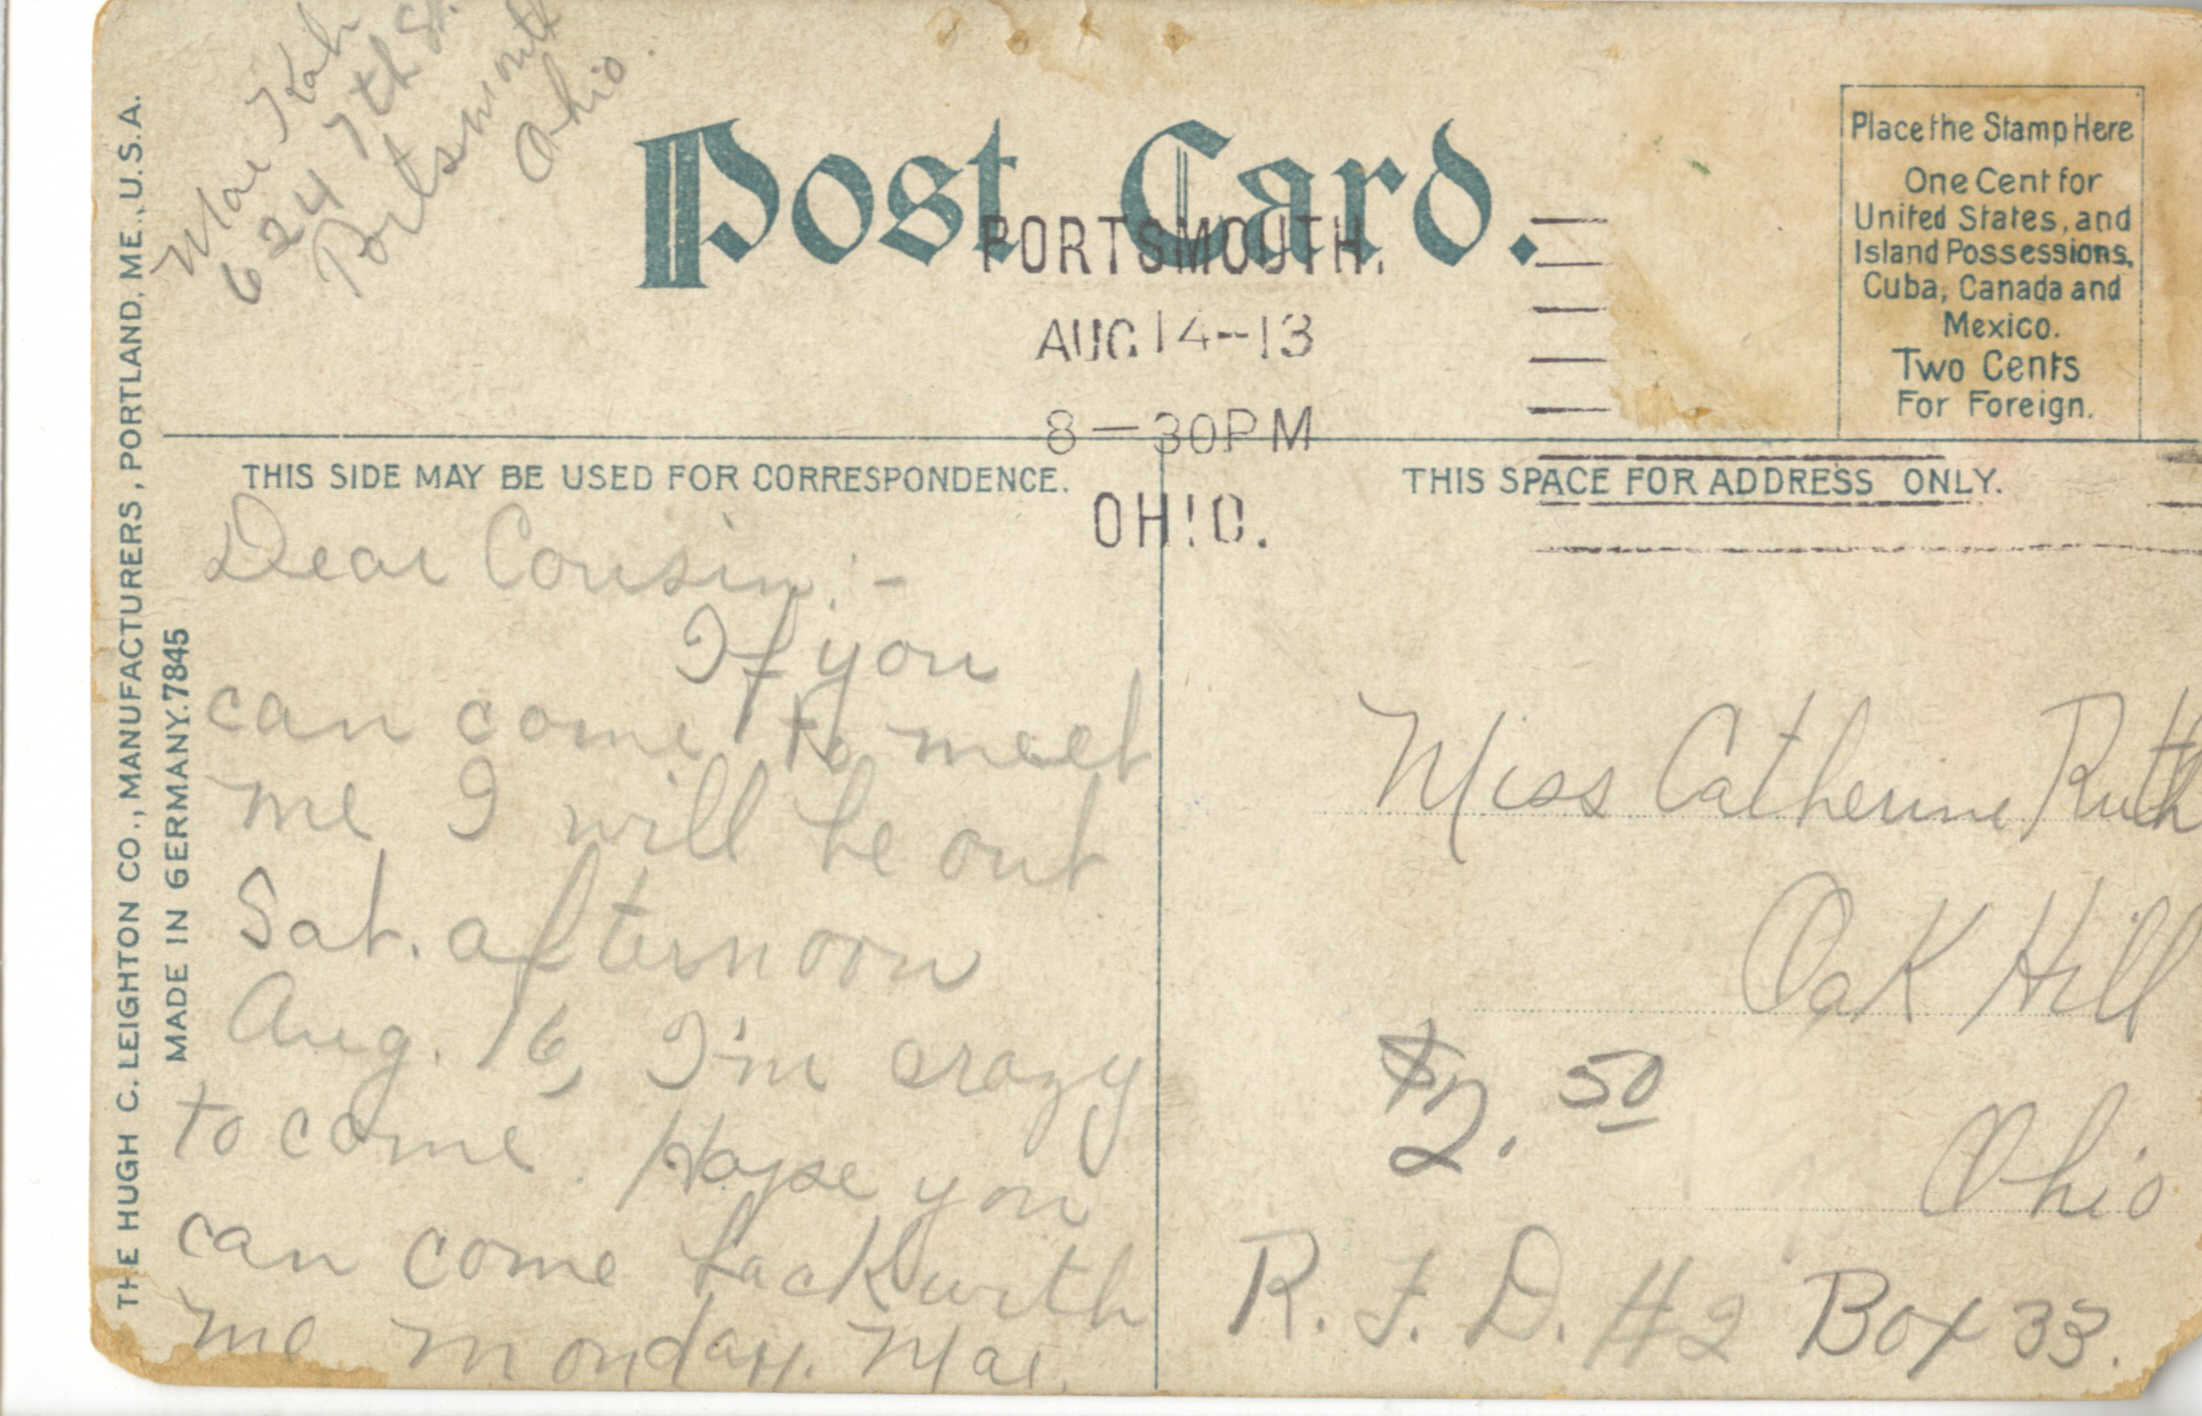 Mae Kah
624 7th St.
Portsmouth
Ohio.
Post Card.
PORTSMOUTH.
AUG 14-13
8-30PM
OHIO.
Place the Stamp Here
One Cent for
United States, and
Island Possessions,
Cuba, Canada and
Mexico.
Two Cents
For Foreign.
THE HUGH C. LEIGHTON CO., MANUFACTURERS, PORTLAND, ME., U.S.A.
MADE IN GERMANY. 7845
THIS SIDE MAY BE USED FOR CORRESPONDENCE.
Dear Cousin:-
If you
can come to meet
me I will be out
Sat. afternoon
Aug. 16, I'm crazy
to come. Hope you
can come back with
me Monday. Mae.
THIS SPACE FOR ADDRESS ONLY.
Miss Catherine Ruth
Oak Hill
Ohio
$2.50
R.F.D. #2 Box 33.